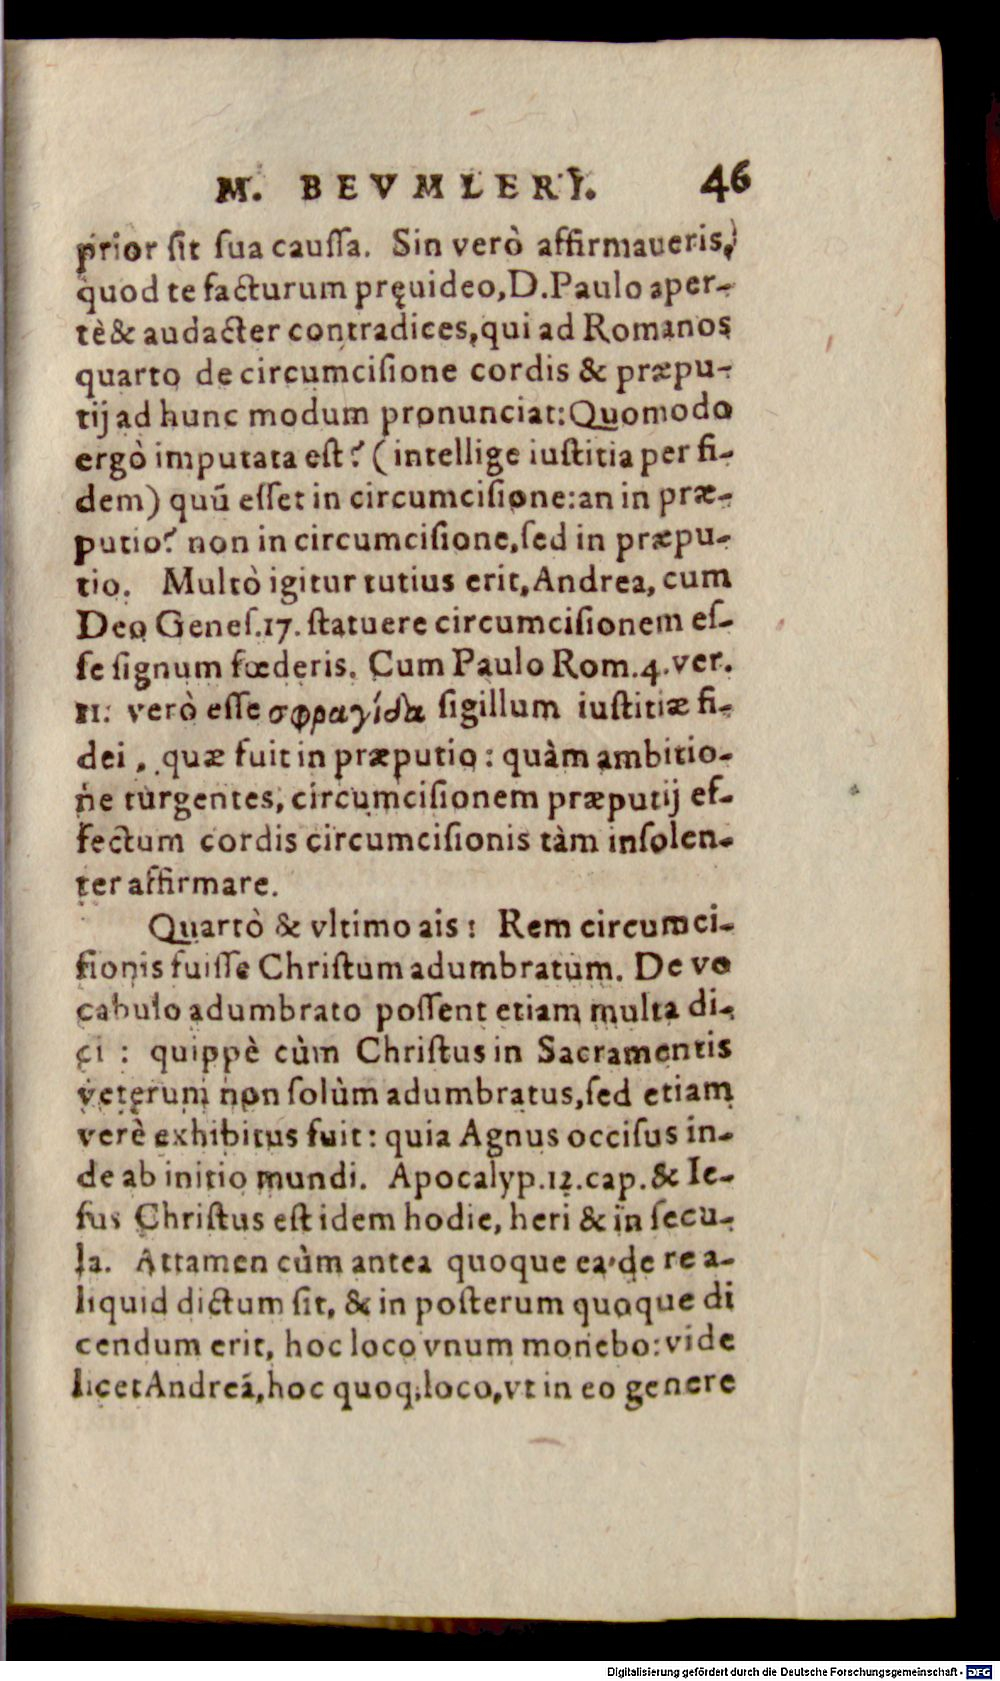 M. BEVMLERI. 46
prior ſit ſua cauſſa. Sin verò affirmaueris,
quod te facturum pręuideo, D. Paulo aper-
tè & audacter contradices, qui ad Romanos
quarto de circumciſione cordis & præpu-
tij ad hunc modum pronunciat: Quomodo
ergò imputata eſt? (intellige iuſtitia per fi-
dem) quū eſſet in circumciſione: an in præ-
putio? non in circumciſione, ſed in præpu-
tio. Multò igitur tutius erit, Andrea, cum
Deo Geneſ. 17. ſtatuere circumciſionem eſ-
ſe ſignum fœderis. Cum Paulo Rom. 4. ver.
11. verò eſſe σφραγίδα ſigillum iuſtitiæ fi-
dei, quæ fuit in præputio: quàm ambitio-
ne turgentes, circumciſionem præputij ef-
fectum cordis circumciſionis tàm inſolen-
ter affirmare.
Quartò & vltimo ais: Rem circumci-
ſionis fuiſſe Chriſtum adumbratum. De vo
cabulo adumbrato poſſent etiam multa di-
ci: quippè cùm Chriſtus in Sacramentis
veterum non ſolùm adumbratus, ſed etiam
verè exhibitus fuit: quia Agnus occiſus in-
de ab initio mundi. Apocalyp. 12. cap. & Ie-
ſus Chriſtus eſt idem hodie, heri & in ſecu-
la. Attamen cùm antea quoque ea de re a-
liquid dictum ſit, & in poſterum quoque di
cendum erit, hoc loco vnum monebo: vide
licet Andreā, hoc quoq; loco, vt in eo genere
Digitalisierung gefördert durch die Deutsche Forschungsgemeinschaft - DFG